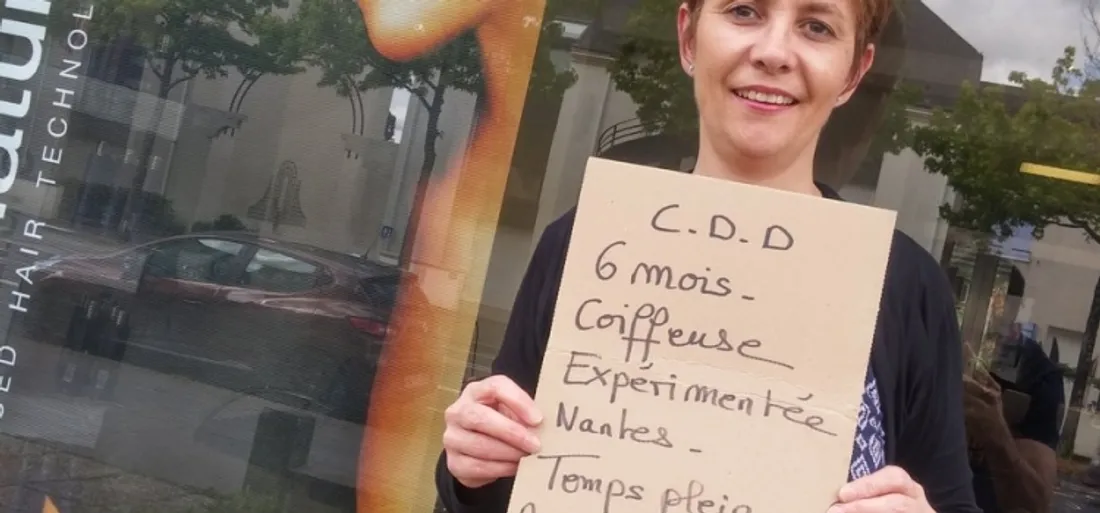 C.D.D
6 mois -
Coiffeuse
Expérimentée
Nantes -
Temps plein
HAIR TECHNOL